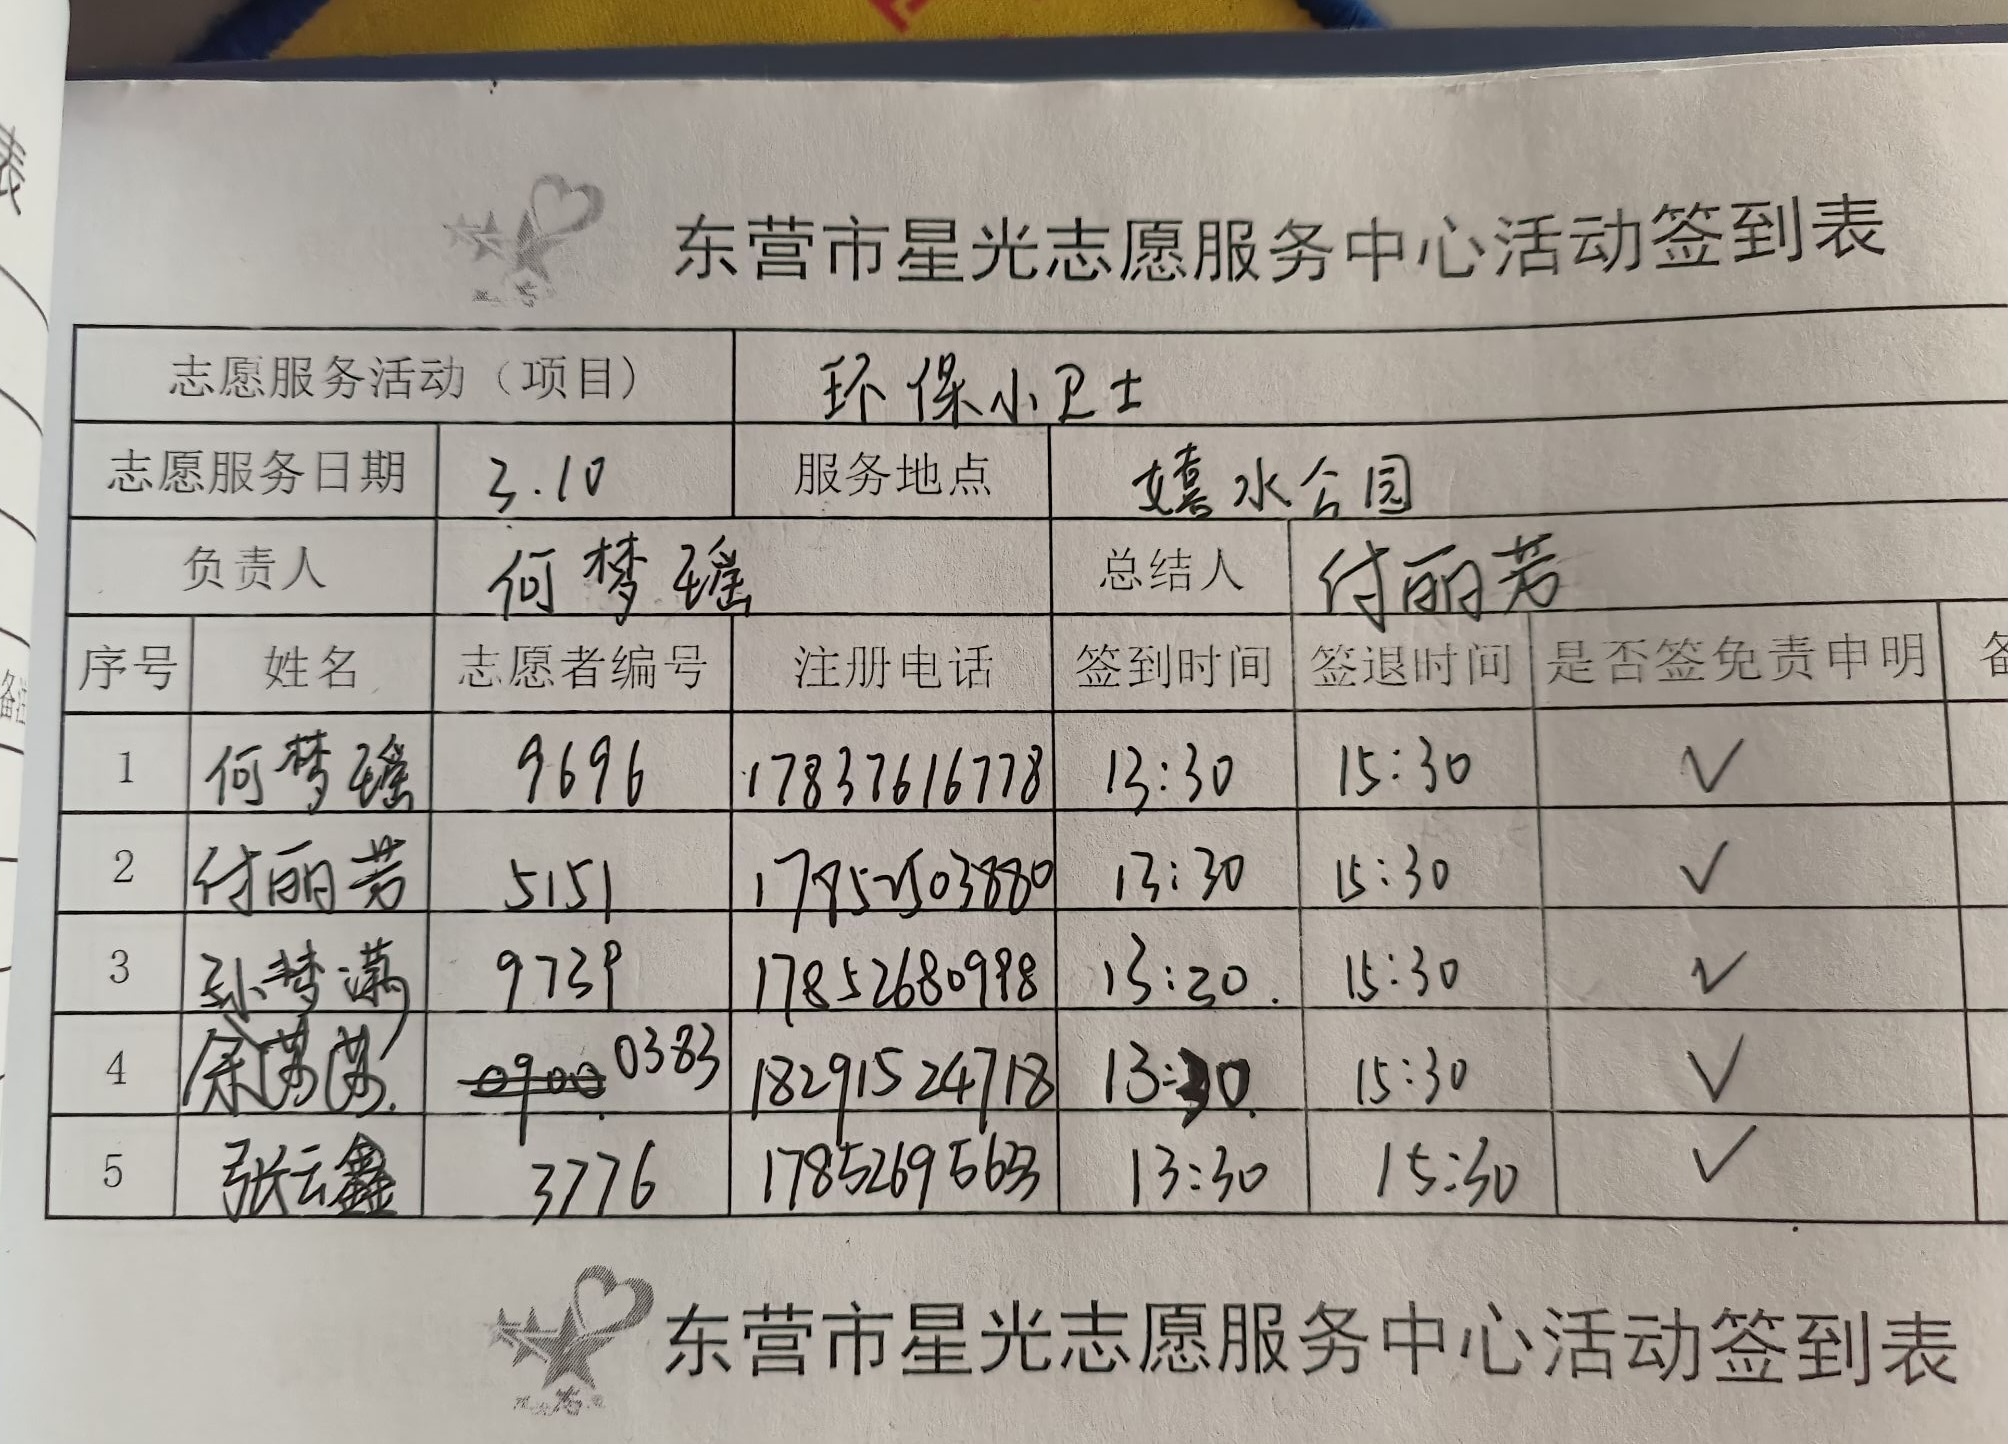 表
备注
东营市星光志愿服务中心活动签到表
志愿服务活动（项目） 环保小卫士
志愿服务日期 3.10 服务地点 嬉水公园
负责人 何梦瑶 总结人 付丽芳
序号 姓名 志愿者编号 注册电话 签到时间 签退时间 是否签免责申明 备
1 何梦瑶 9696 17837616778 13:30 15:30 ✓
2 付丽芳 5151 17852503880 13:30 15:30 ✓
3 孙梦潇 9739 17852680998 13:30. 15:30 ✓
4 余苏苏. 0900 0383 18291524718 13:30. 15:30 ✓
5 张云鑫 3776 17852695633 13:30 15:30 ✓
东营市星光志愿服务中心活动签到表